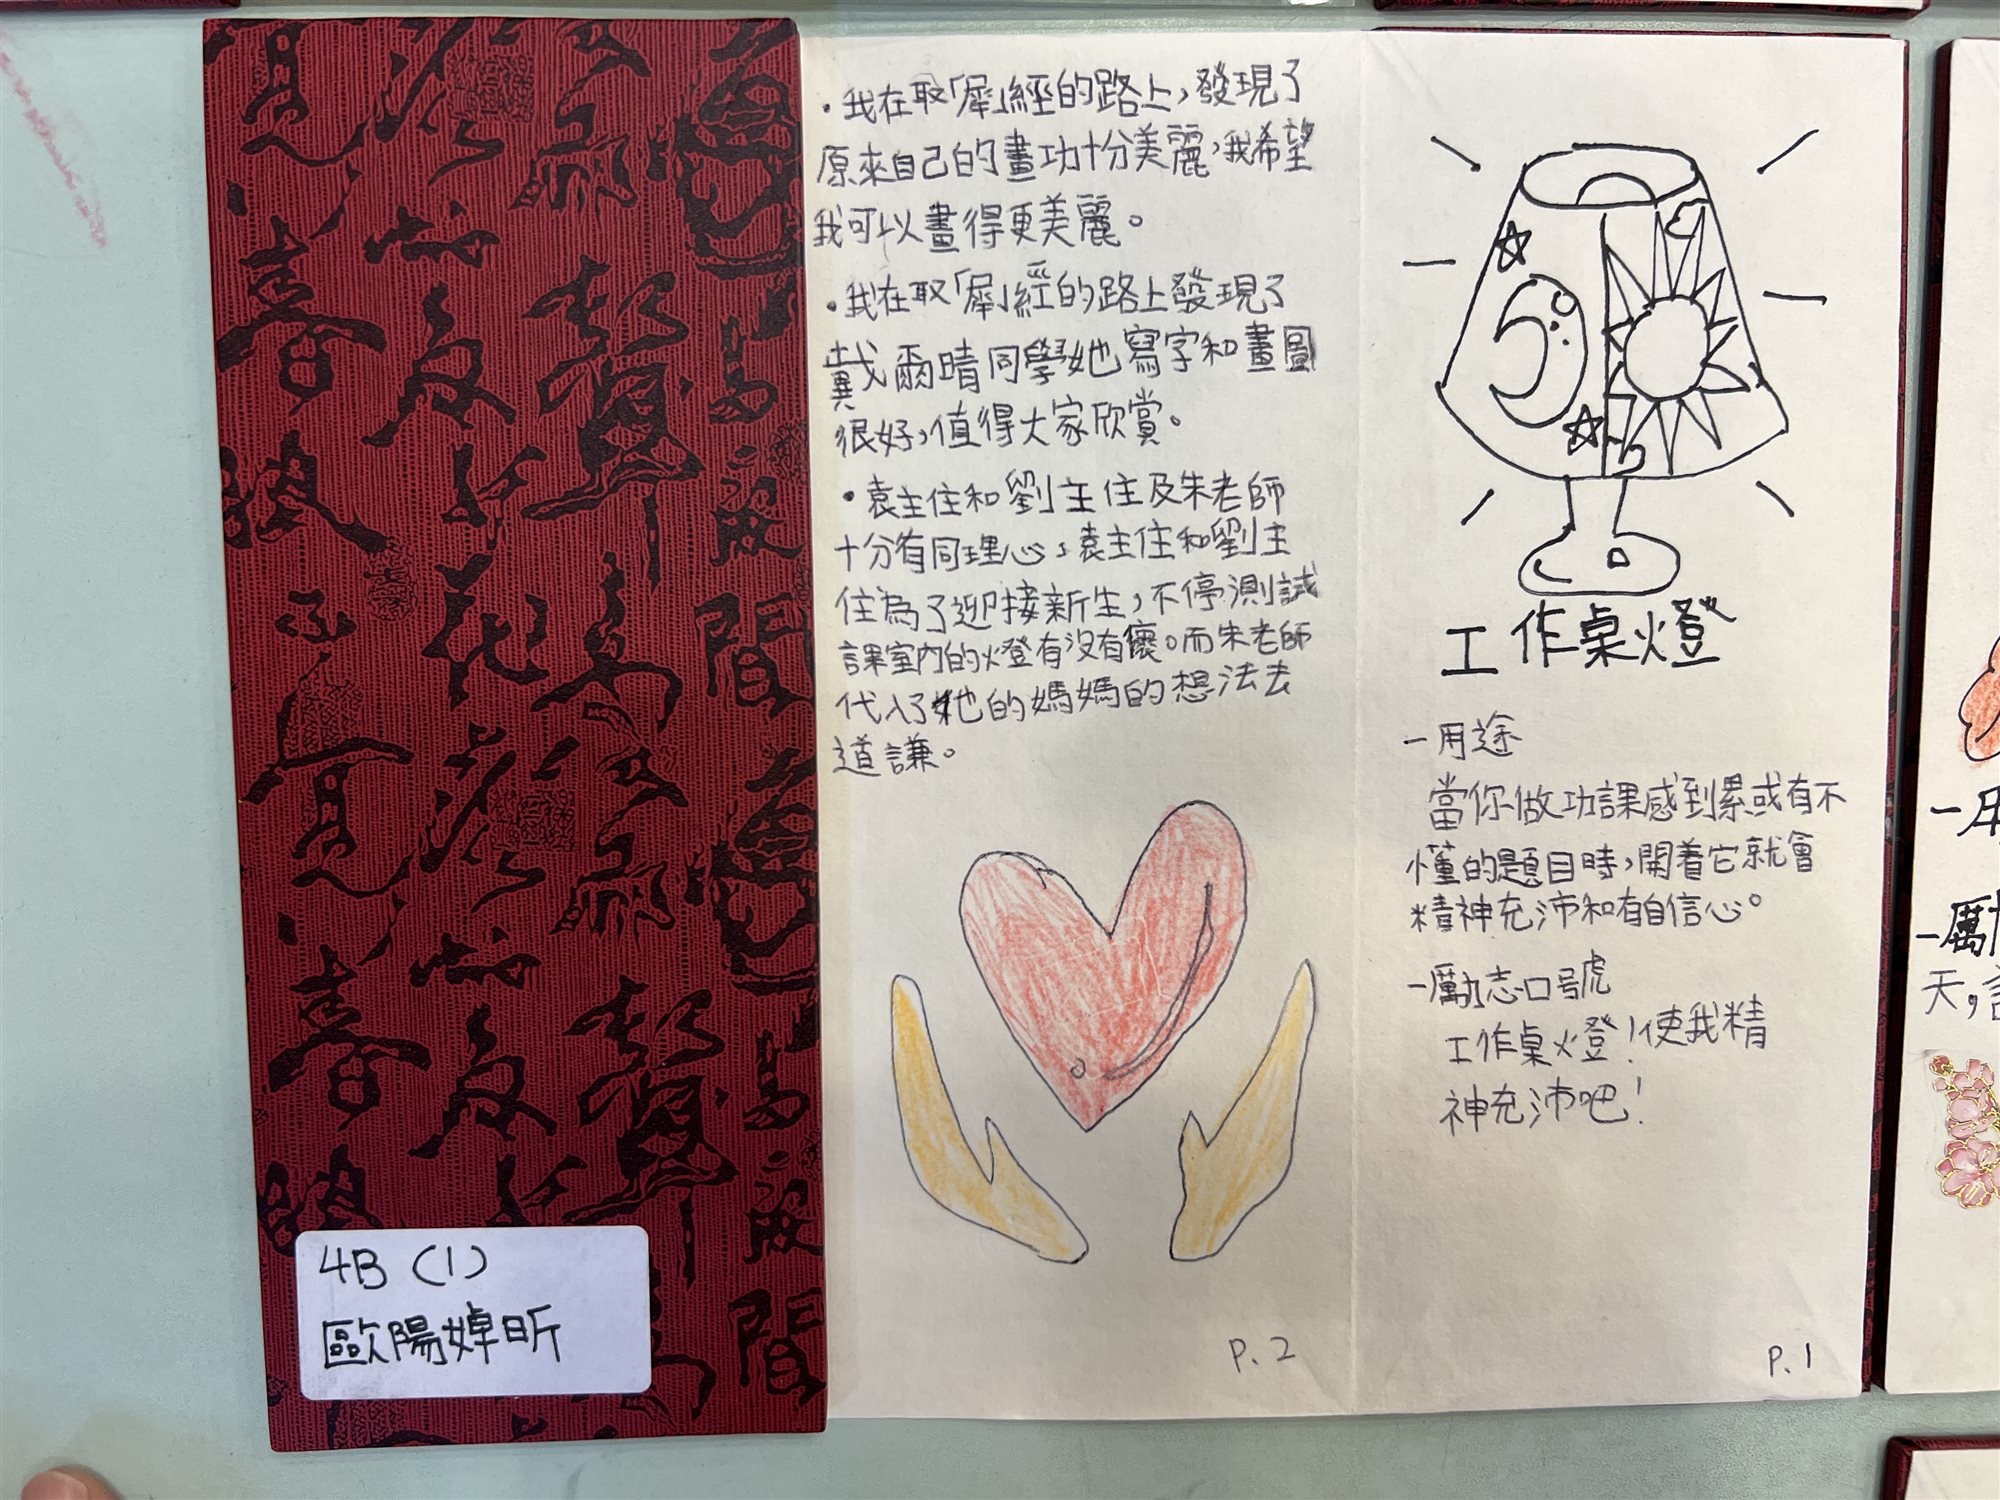 4B (1)
歐陽婥昕
・我在取「犀」經的路上，發現了
原來自己的畫功十分美麗，我希望
我可以畫得更美麗。
・我在取「犀」經的路上發現了
戴爾晴同學她寫字和畫圖
很好，值得大家欣賞。
・袁主住和劉主住及朱老師
十分有同理心，袁主住和劉主
住為了迎接新生，不停測試
課室內的燈有沒有懷。而朱老師
代入了她的媽媽的想法去
道謙。
P.2
工作桌燈
－用途
當你做功課感到累或有不
懂的題目時，開着它就會
精神充沛和有自信心。
－勵志口號
工作桌燈！使我精
神充沛吧！
P.1